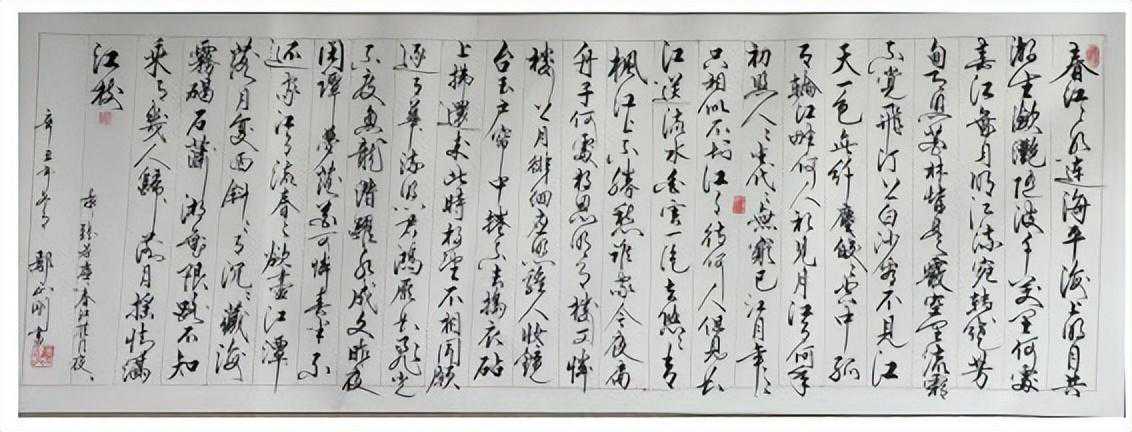 春江潮水連海平海上明月共
潮生灩灩随波千万里何處
春江無月明江流宛转绕芳
甸月照花林皆是霰空里流霜
不覺飛汀上白沙看不見江
天一色無纤塵皎皎空中孤
月輪江畔何人初見月江月何年
初照人人生代代無窮已江月年年
只相似不知江月待何人但見长
江送流水白雲一片去悠悠青
楓江上不勝愁谁家今夜扁
舟子何處相思明月樓可憐
楼上月徘徊應照離人妆鏡
台玉户帘中捲不去捣衣砧
上拂還来此时相望不相闻願
逐月華流照君鸿雁长飛光
不度魚龍潜躍水成文昨夜
闲潭夢落花可憐春半不
還家江水流春去欲盡江潭
落月复西斜斜月沉沉藏海
霧碣石潇湘無限路不知
乘月幾人歸落月摇情满
江树
录張若虚春江花月夜
辛丑年冬月